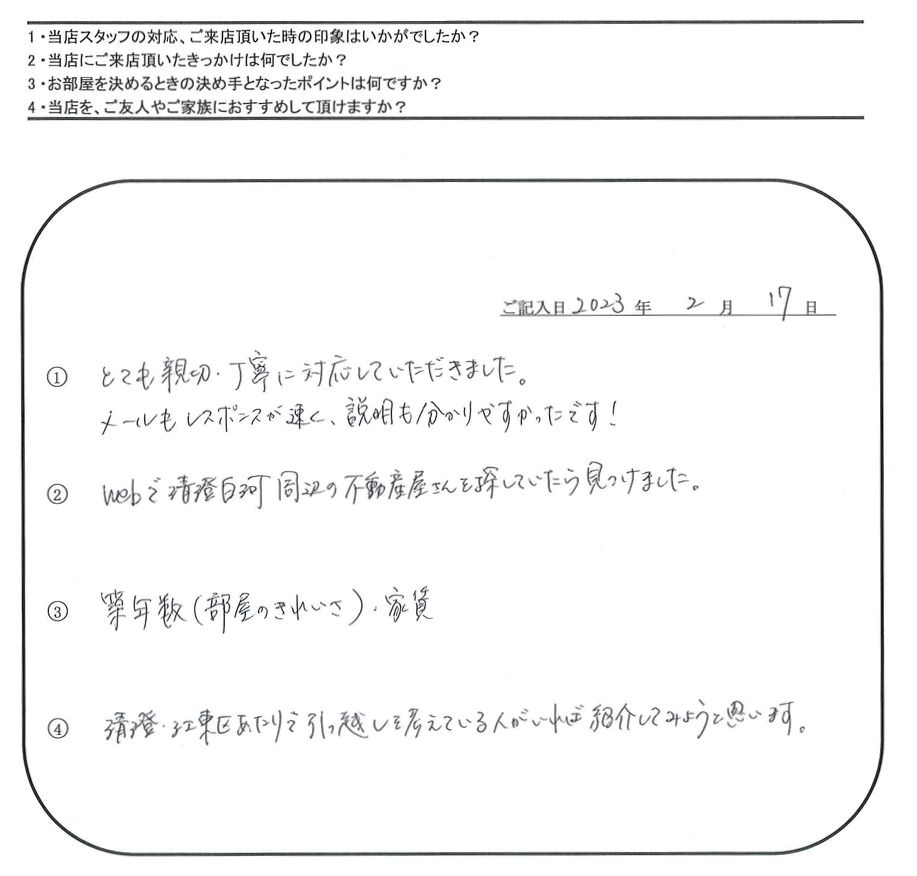 1・当店スタッフの対応、ご来店頂いた時の印象はいかがでしたか？
2・当店にご来店頂いたきっかけは何でしたか？
3・お部屋を決めるときの決め手となったポイントは何ですか？
4・当店を、ご友人やご家族におすすめして頂けますか？
ご記入日 2023 年 2 月 17 日
① とても親切・丁寧に対応していただきました。
メールもレスポンスが速く、説明も分かりやすかったです！
② webで清澄白河周辺の不動産屋さんを探していたら見つけました。
③ 築年数(部屋のきれいさ)・家賃
④ 清澄・江東区あたりで引っ越しを考えている人がいれば紹介してみようと思います。